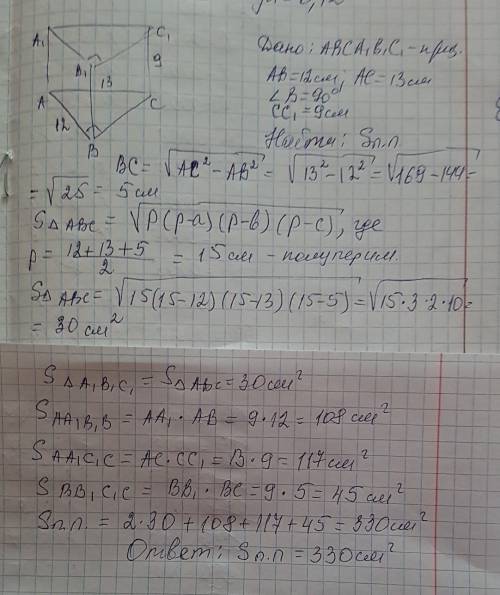 A₁ C₁
B₁ 9
13
A C
12
B
Дано: ABCA₁B₁C₁ - приз.
AB=12см, AC=13см
∠B=90°
CC₁=9см
Найти: Sп.п.
BC = √(AC² - AB²) = √(13² - 12²) = √(169 - 144) =
= √25 = 5см
S△ABC = √(p(p-a)(p-b)(p-c)), где
p = (12+13+5)/2 = 15см - полуперим.
S△ABC = √(15(15-12)(15-13)(15-5)) = √(15·3·2·10) =
= 30см²
S△A₁B₁C₁ = S△ABC = 30см²
SAA₁B₁B = AA₁·AB = 9·12 = 108см²
SAA₁C₁C = AC·CC₁ = 13·9 = 117см²
SBB₁C₁C = BB₁·BC = 9·5 = 45см²
Sп.п. = 2·30+108+117+45 = 330см²
Ответ: Sп.п = 330см²